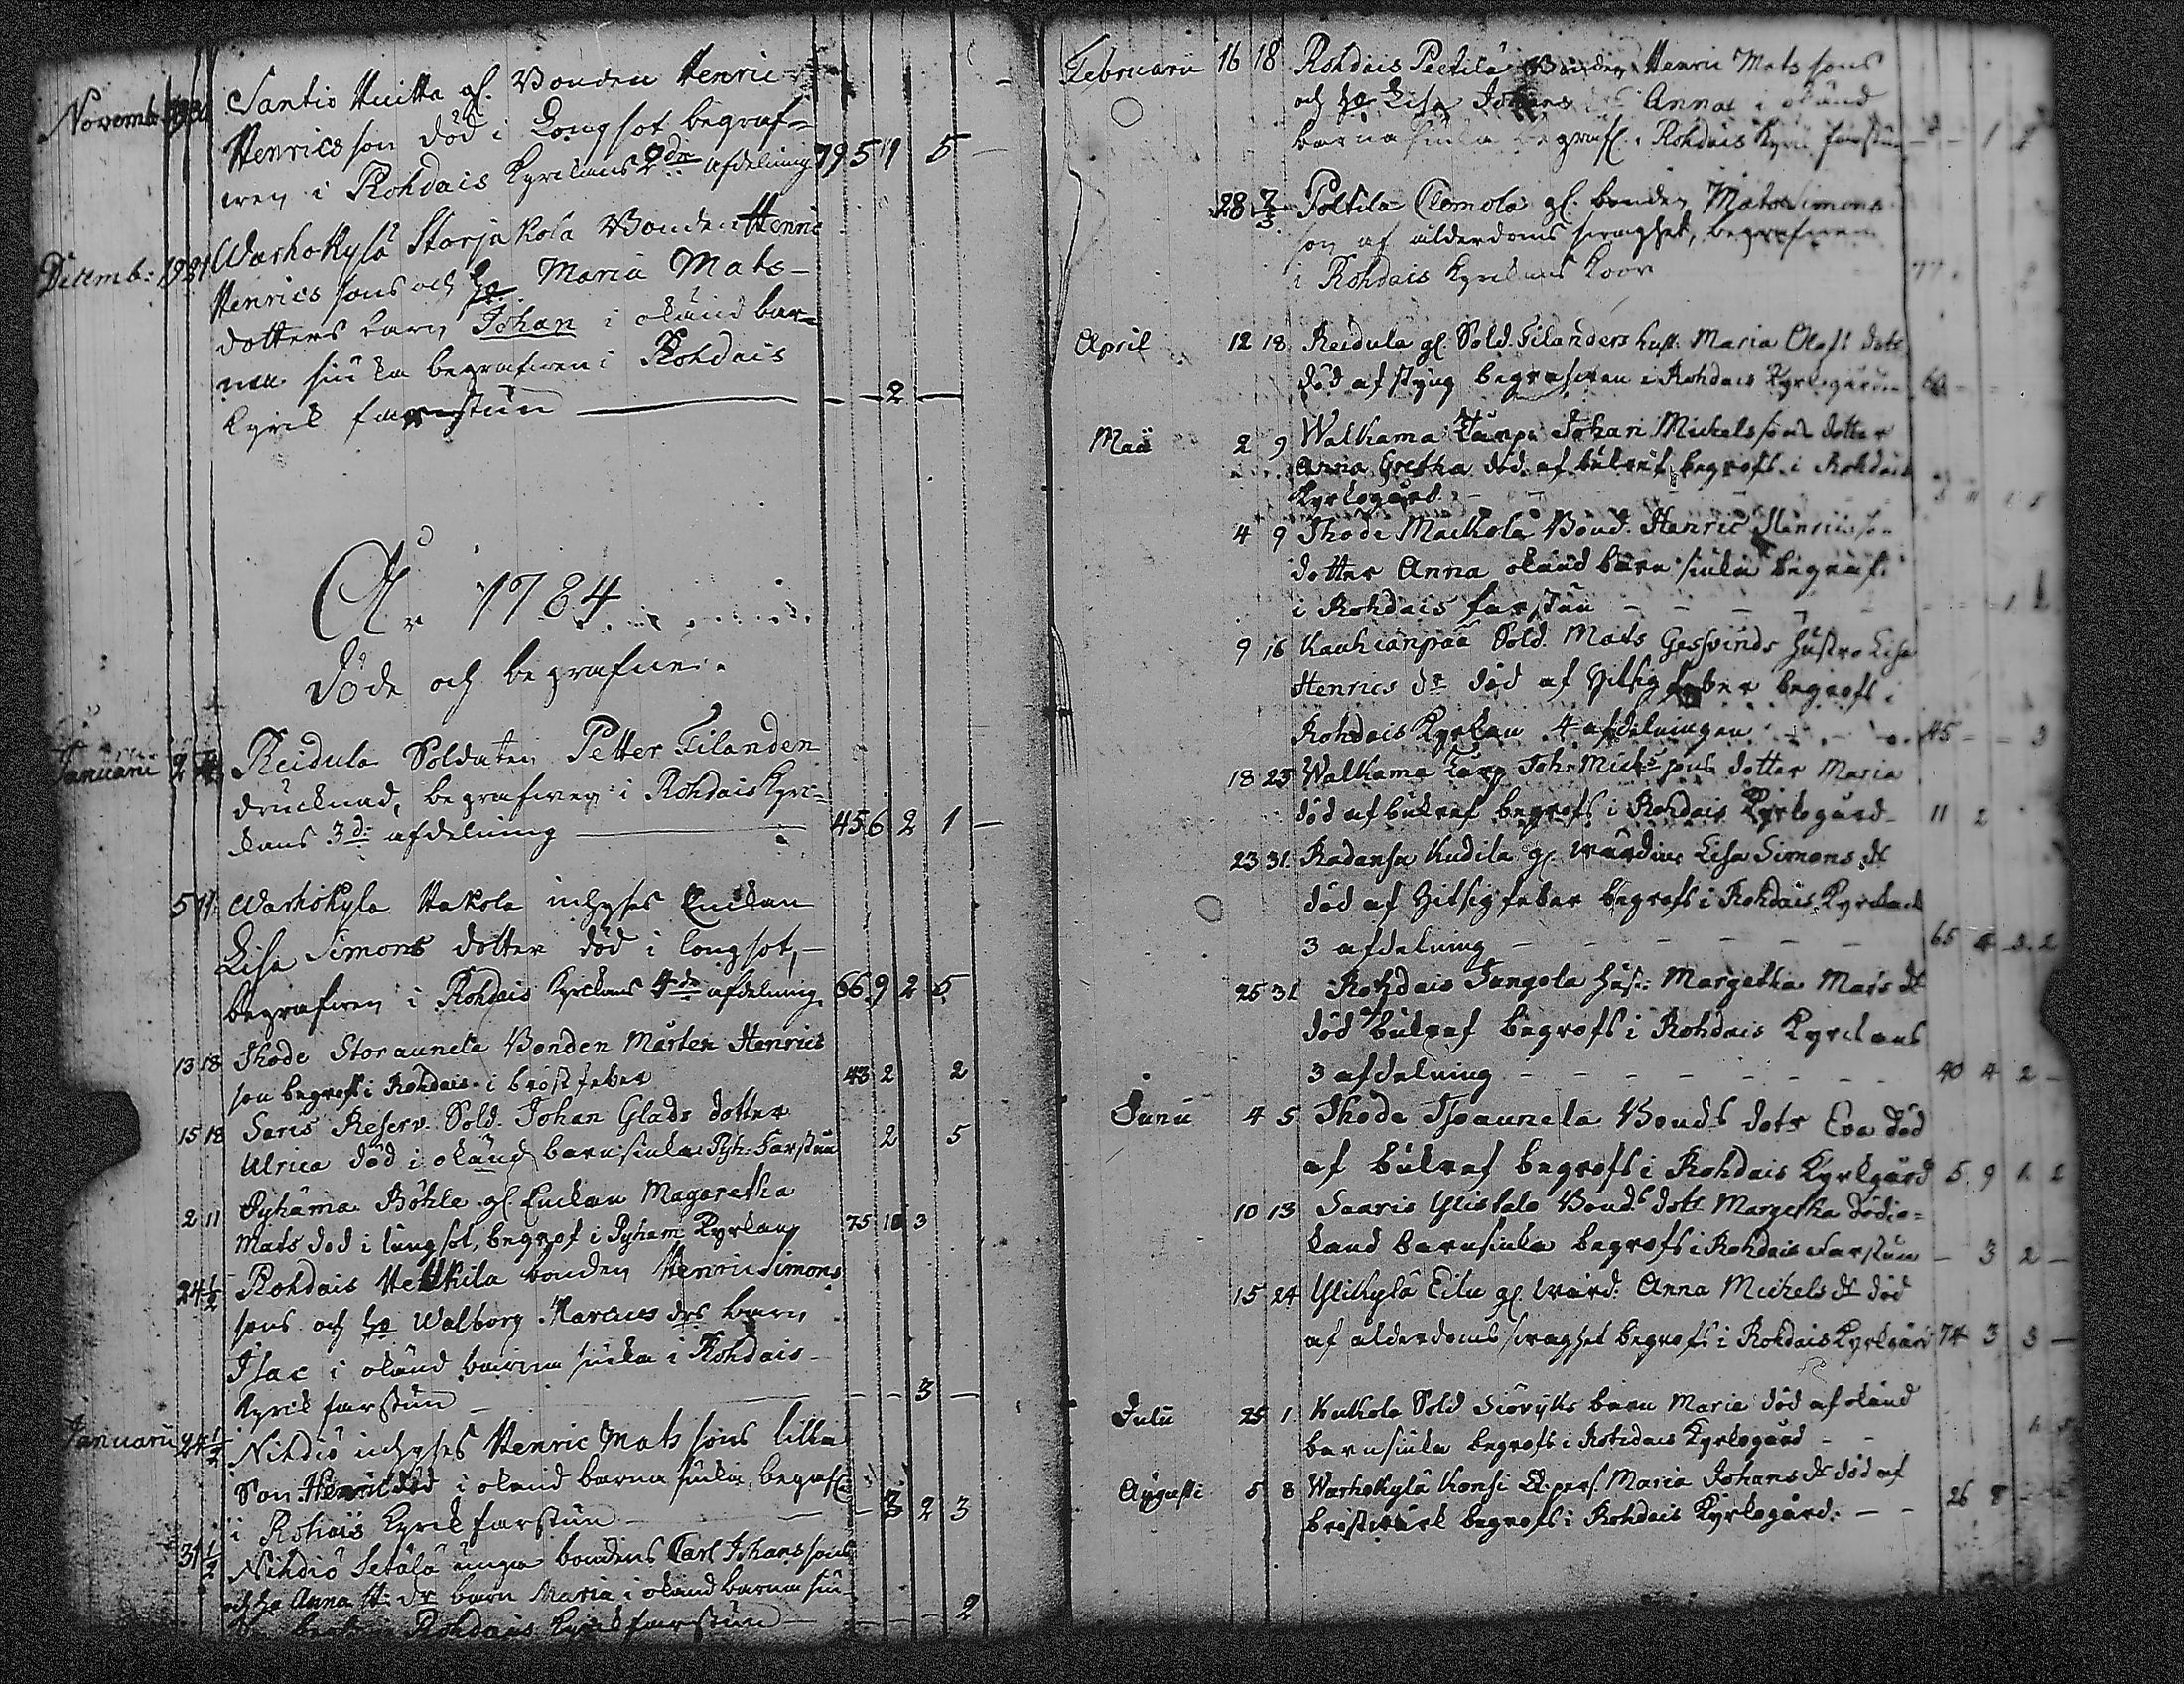 Novemb:
Santio Huitta gl. Bonden Henric
Henricsson död i Longsot begraf-
wen i Rohdais Kyrckans 2dre afdelning 79 5 1 5 —
Decemb: Warhokylä Storjakola Bonden Henric
Henrics sons och ho Maria Mats-
dotters barn Johan i okänd bar-
na siuka begrafwen i Rohdais
Kyrck farstun — — 2 —
År 1784
döde och begrafne.
Januarii 2 Reidula Soldaten Petter Filanden
drucknad, begrafwen i Rohdais Kyrc-
kans 3de afdelning — 45 6 2 1 —
5 11 Warhokyla Hakola inhyses Enckan
Lisa Simons dotter död i longsot, —
begrafwen i Rohdais Kyrckans 4de afdelning 66 9 2 5
13 18 Thode Storaunela Bonden Mårten Henrics
son begrofs i Rohdais i bröstfeber 43 2 2
15 18 Saris Reserv. Sold. Johan Glads dotter
Ulrica död i okänd barnsiuka Pyh. Farstun 2 5
2 11 Pyhäma Böhle gl. Enckan Magaretha
Mats död i lungsot, begrof i Pyham Kyrkan 75 10 3
24 1/2 Rohdais Heikkila bonden Henric Simons
sons och ho Walborg Marcus drs barn
Isac i okänd barna siuka i Rohdais
Kyrck farstun — — — 3 —
Januarii 24 1/2 Nihdiö inhyses Henric Mats sons lilla
Son Henric död i okänd barna siuka, begrafs
i Rohdais Kyrck farstun — — 3 2 3
31 1/2 Nihdiö Setälä unga bondens Carl Johans sons
och ho Anna H. dr barn Maria i okänd barna siu-
Rohdais Kyrck farstun — — — 2
Februarii 16 18 Rohdais Peetilä Bonden Henric Mats sons
och ho Lisa Johans Anna i okänd
barna siuka begrafs i Rohdais Kyrck farstun — — 1
28 7/3 Poltila Clemola gl. bonden Mats Simons
son af ålderdoms swaghet, begrafwen
i Rohdais Kyrckans koor 77
April 12 18 Reidula gl. Sold. Filanders hust. Maria Olofs dotr
död af styng begrafwen i Rohdais Kyrkogården
Maii 2 9 Walkama Torp. Johan Michelssons dotter
Anna Gretha död af bukref begrofs i Rohdais
Kyrkogård — —
4 9 Thode Maikola Bond. Henric Henricsson
dotter Anna okänd barn siuka begraf.
i Rohdais farstun — — —
9 16 Kauhianpää Sold. Mats Gesvinds hustro Lisa
Henrics dr död af hitsig feber begrofs i
Rohdais Kyrkan 4 afdelningen 45 — — 3
18 23 Walkama Torp Joh. Michs sons dotter Maria
död af bukref begrofs i Rohdais Kyrkogård 11 2
23 31 Radansu Kudila gl. wärdin: Lisa Simons dr
död af hitsig feber begrofs i Rohdais Kyrckans
3 afdelning — — — — — 65 4 3 2
25 31 Rohdais Tangola hust: Margetha Mats dr
död af bukref begrofs i Rohdais Kyrckans
3 afdelning — — — — — 40 4 2 —
Junii 4 5 Thode Isoaunela Bonds dotr Eva död
af bukref begrofs i Rohdais Kyrkgård 5 9 1 2
10 13 Saaris Ylistalo Bonds dotr Margetha död i o-
känd barnsiuka begrofs i Rohdais Farstun — 3 2 —
15 24 Ylikylä Eilu gl. wärd. Anna Michels dr död
af ålderdoms swaghet begrofs i Rohdais Kyrkgård 74 3 3 —
Julii 25 1 Kukola Sold Siövyks barn Maria död af okänd
barnsiuka begrofs i Rohdais Kyrkogård —
Augusti 5 8 Warhokylä Konsi Maria Johans dr död af
bröstwärk begrofs i Rohdais Kyrkogård. — — 26 8